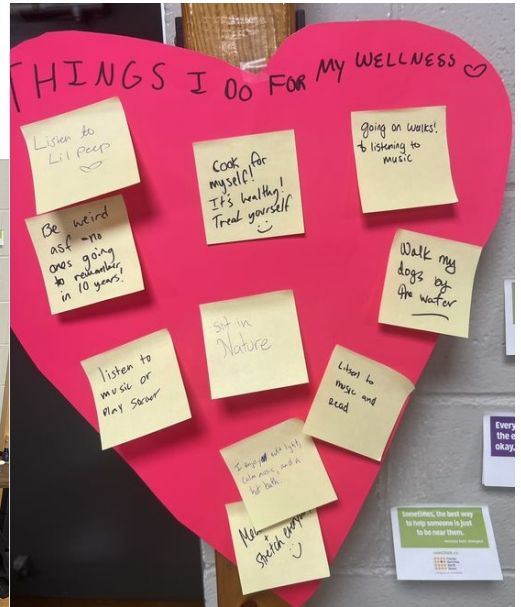 THINGS I DO FOR MY WELLNESS
Listen to
Lil Peep
Cook for
myself!
It's healthy!
Treat yourself
going on walks!
& listening to
music
Be weird
asf - no
ones going
to remember
in 10 years!
Walk my
dogs by
the water
sit in
Nature
listen to
music or
play soccer
Listen to
music and
read
I enjoy soft light,
calm music, and a
hot bath.
stretch
Every
the e
okay,
Sometimes, the best way
to help someone is just
to be near them.